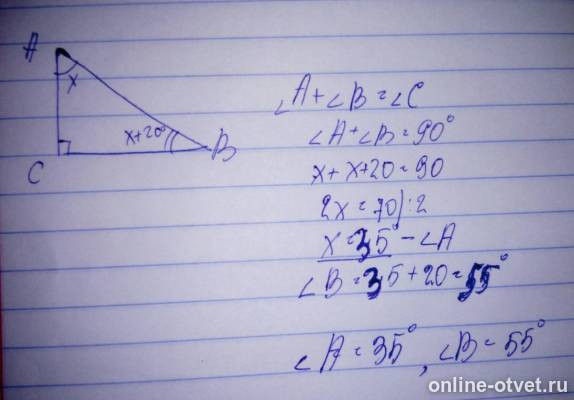 A
x
x+20°
B
C
∠A+∠B=∠C
∠A+∠B=90°
x+x+20=90
2x=70|:2
x=35°-∠A
∠B=35+20=55°
∠A=35°, ∠B=55°
online-otvet.ru